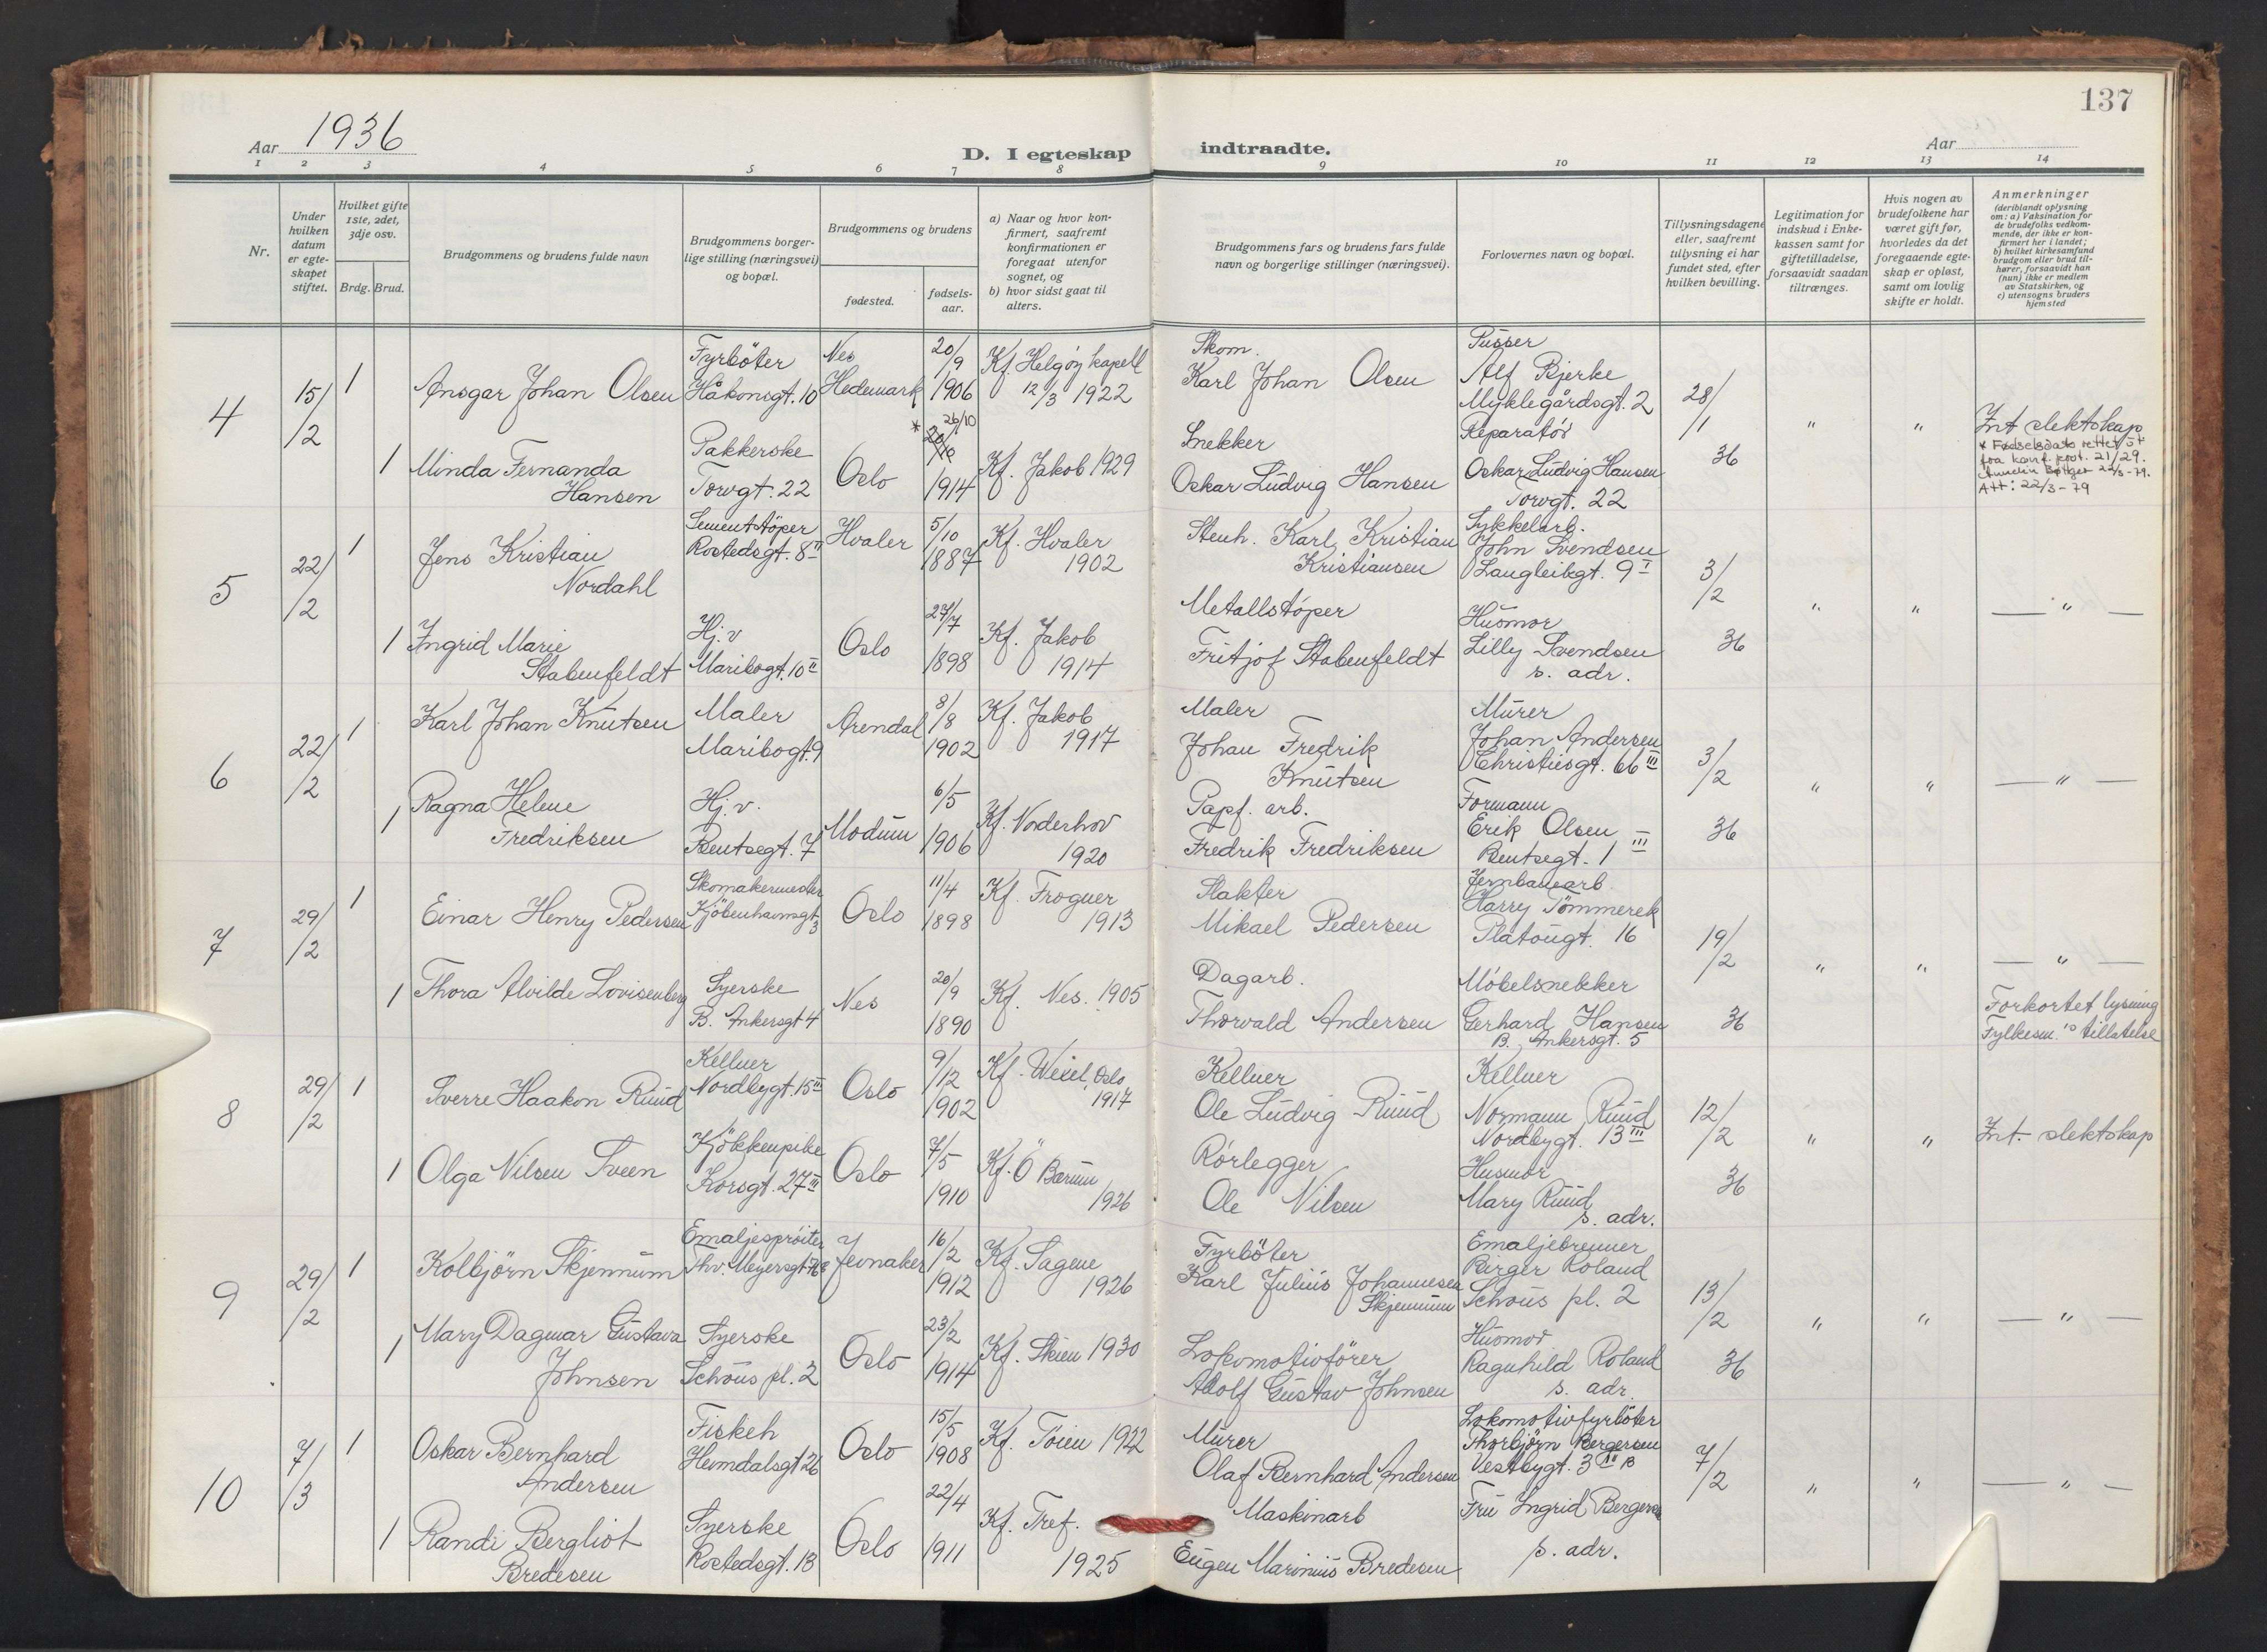 137
Aar 1936
D. I egteskap indtraadte.
Aar
1 2 3 4 5 6 7 8 9 10 11 12 13 14
Nr.
Under hvilken datum er egte-skapet stiftet.
Hvilket gifte 1ste, 2det, 3dje osv.
Brdg. Brud.
Brudgommens og brudens fulde navn
Brudgommens borger-lige stilling (næringsvei) og bopæl.
Brudgommens og brudens
fødested.
fødsels-aar.
a) Naar og hvor kon-firmert, saafremt konfirmationen er foregaat utenfor sognet, og
b) hvor sidst gaat til alters.
Brudgommens fars og brudens fars fulde navn og borgerlige stillinger (næringsvei).
Forlovernes navn og bopæl.
Tillysningsdagene eller, saafremt tillysning ei har fundet sted, efter hvilken bevilling.
Legitimation for indskud i Enke-kassen samt for giftetilladelse, forsaavidt saadan tiltrænges.
Hvis nogen av brudefolkene har været gift før, hvorledes da det foregaaende egte-skap er opløst, samt om lovlig skifte er holdt.
Anmerkninger
(deriblandt oplysning om: a) Vaksination for de brudefolks vedkom-mende, der ikke er kon-firmert her i landet; b) hvilket kirkesamfund brudgom eller brud til-hører, forsaavidt han (hun) ikke er medlem av Statskirken, og c) utensogns bruders hjemsted
4
15/2
1
Ansgar Johan Olsen
Fyrböter
Håkonsgt. 10
Nes
Hedemark
20/9
1906
Kf. Helgøy kapell
12/3 1922
Skom.
Karl Johan Olsen
Pusser
Alf Bjerke
Myklegårdsgt. 2
28/1
36
"
"
Int slektskap
* Fødselsdato rettet
fra konf. prot. 21/29.
22/3-79.
Att: 22/3-79
1
Minda Fernanda
Hansen
Pakkerske
Torvgt. 22
Oslo
* 26/10
20/10
1914
Kf. Jakob 1929
Snekker
Oskar Ludvig Hansen
Reparatör
Oskar Ludvig Hansen
Torvgt. 22
5
22/2
1
Jens Kristian
Nordahl
Sementstöper
Rostedsgt. 8 II
Hvaler
5/10
1887
Kf. Hvaler
1902
Stenh. Karl Kristian
Kristiansen
Sykkelarb.
John Svendsen
Langleikgt. 9 I
3/2
36
"
"
— " —
1
Ingrid Marie
Stabenfeldt
Hj. v
Maribogt. 10 II
Oslo
27/7
1898
Kf. Jakob
1914
Metallstöper
Fritjof Stabenfeldt
Husmor
Lilly Svendsen
s. adr.
6
22/2
1
Karl Johan Knutsen
Maler
Maribogt. 9
Arendal
8/8
1902
Kf. Jakob
1917
Maler
Johan Fredrik
Knutsen
Murer
Johan Andersen
Christiesgt. 66 III
3/2
36
"
"
— " —
1
Ragna Helene
Fredriksen
Hj. v.
Bentsegt. 7
Modum
6/5
1906
Kf. Norderhov
1920
Papf. arb.
Fredrik Fredriksen
Formann
Erik Olsen
Bentsegt. 1 III
7
29/2
1
Einar Henry Pedersen
Skomakermester
Kjöbenhavnsgt. 3
Oslo
11/4
1898
Kf. Frogner
1913
Slakter
Mikael Pedersen
Jernbanearb.
Harry Tömmerek
Platougt. 16
19/2
36
"
"
— " —
Forkortet lysning
Fylkesm.'s tillatelse
1
Thora Alvilde Lovisenberg
Syerske
B. Ankersgt 4
Nes
20/9
1890
Kf. Nes. 1905
Dagarb.
Thorvald Andersen
Möbelsnekker
Gerhard Hansen
B. Ankersgt. 5
8
29/2
1
Sverre Haakon Ruud
Kellner
Nordbygt. 15 III
Oslo
9/12
1902
Kf. Wexel, Oslo
1917
Kellner
Ole Ludvig Ruud
Kellner
Normann Ruud
Nordbygt. 13 III
12/2
36
"
"
Int. slektskap
1
Olga Nilsen Sveen
Kjökkenpike
Korsgt. 27 III
Oslo
7/5
1910
Kf. Ö Bærum
1926
Rörlegger
Ole Nilsen
Husmor
Mary Ruud
s. adr.
9
29/2
1
Kolbjörn Skjennum
Emaljespröiter
Thv. Meyersgt.
Jevnaker
16/2
1912
Kf. Sagene
1926
Fyrböter
Karl Julius Johannesen
Skjennum
Emaljebrenner
Birger Roland
Schous pl. 2
13/2
36
"
"
— " —
1
Mary Dagmar Gustava
Johnsen
Syerske
Schous pl. 2
Oslo
23/2
1914
Kf. Skien 1930
Lokomotivförer
Adolf Gustav Johnsen
Husmor
Ragnhild Roland
s. adr.
10
7/3
1
Oskar Bernhard
Andersen
Fiskeh
Heimdalsgt 26
Oslo
15/5
1908
Kf. Töien 1922
Murer
Olaf Bernhard Andersen
Lokomotivfyrböter
Thorbjörn Bergersen
Vestbygt. 3 III B
7/2
"
"
— " —
1
Randi Bergliot
Bredesen
Syerske
Rostedsgt. 13
Oslo
22/4
1911
Kf. Tref.
1925
Maskinarb
Eugen Marinius Bredesen
Fru Ingrid Bergersen
s. adr.